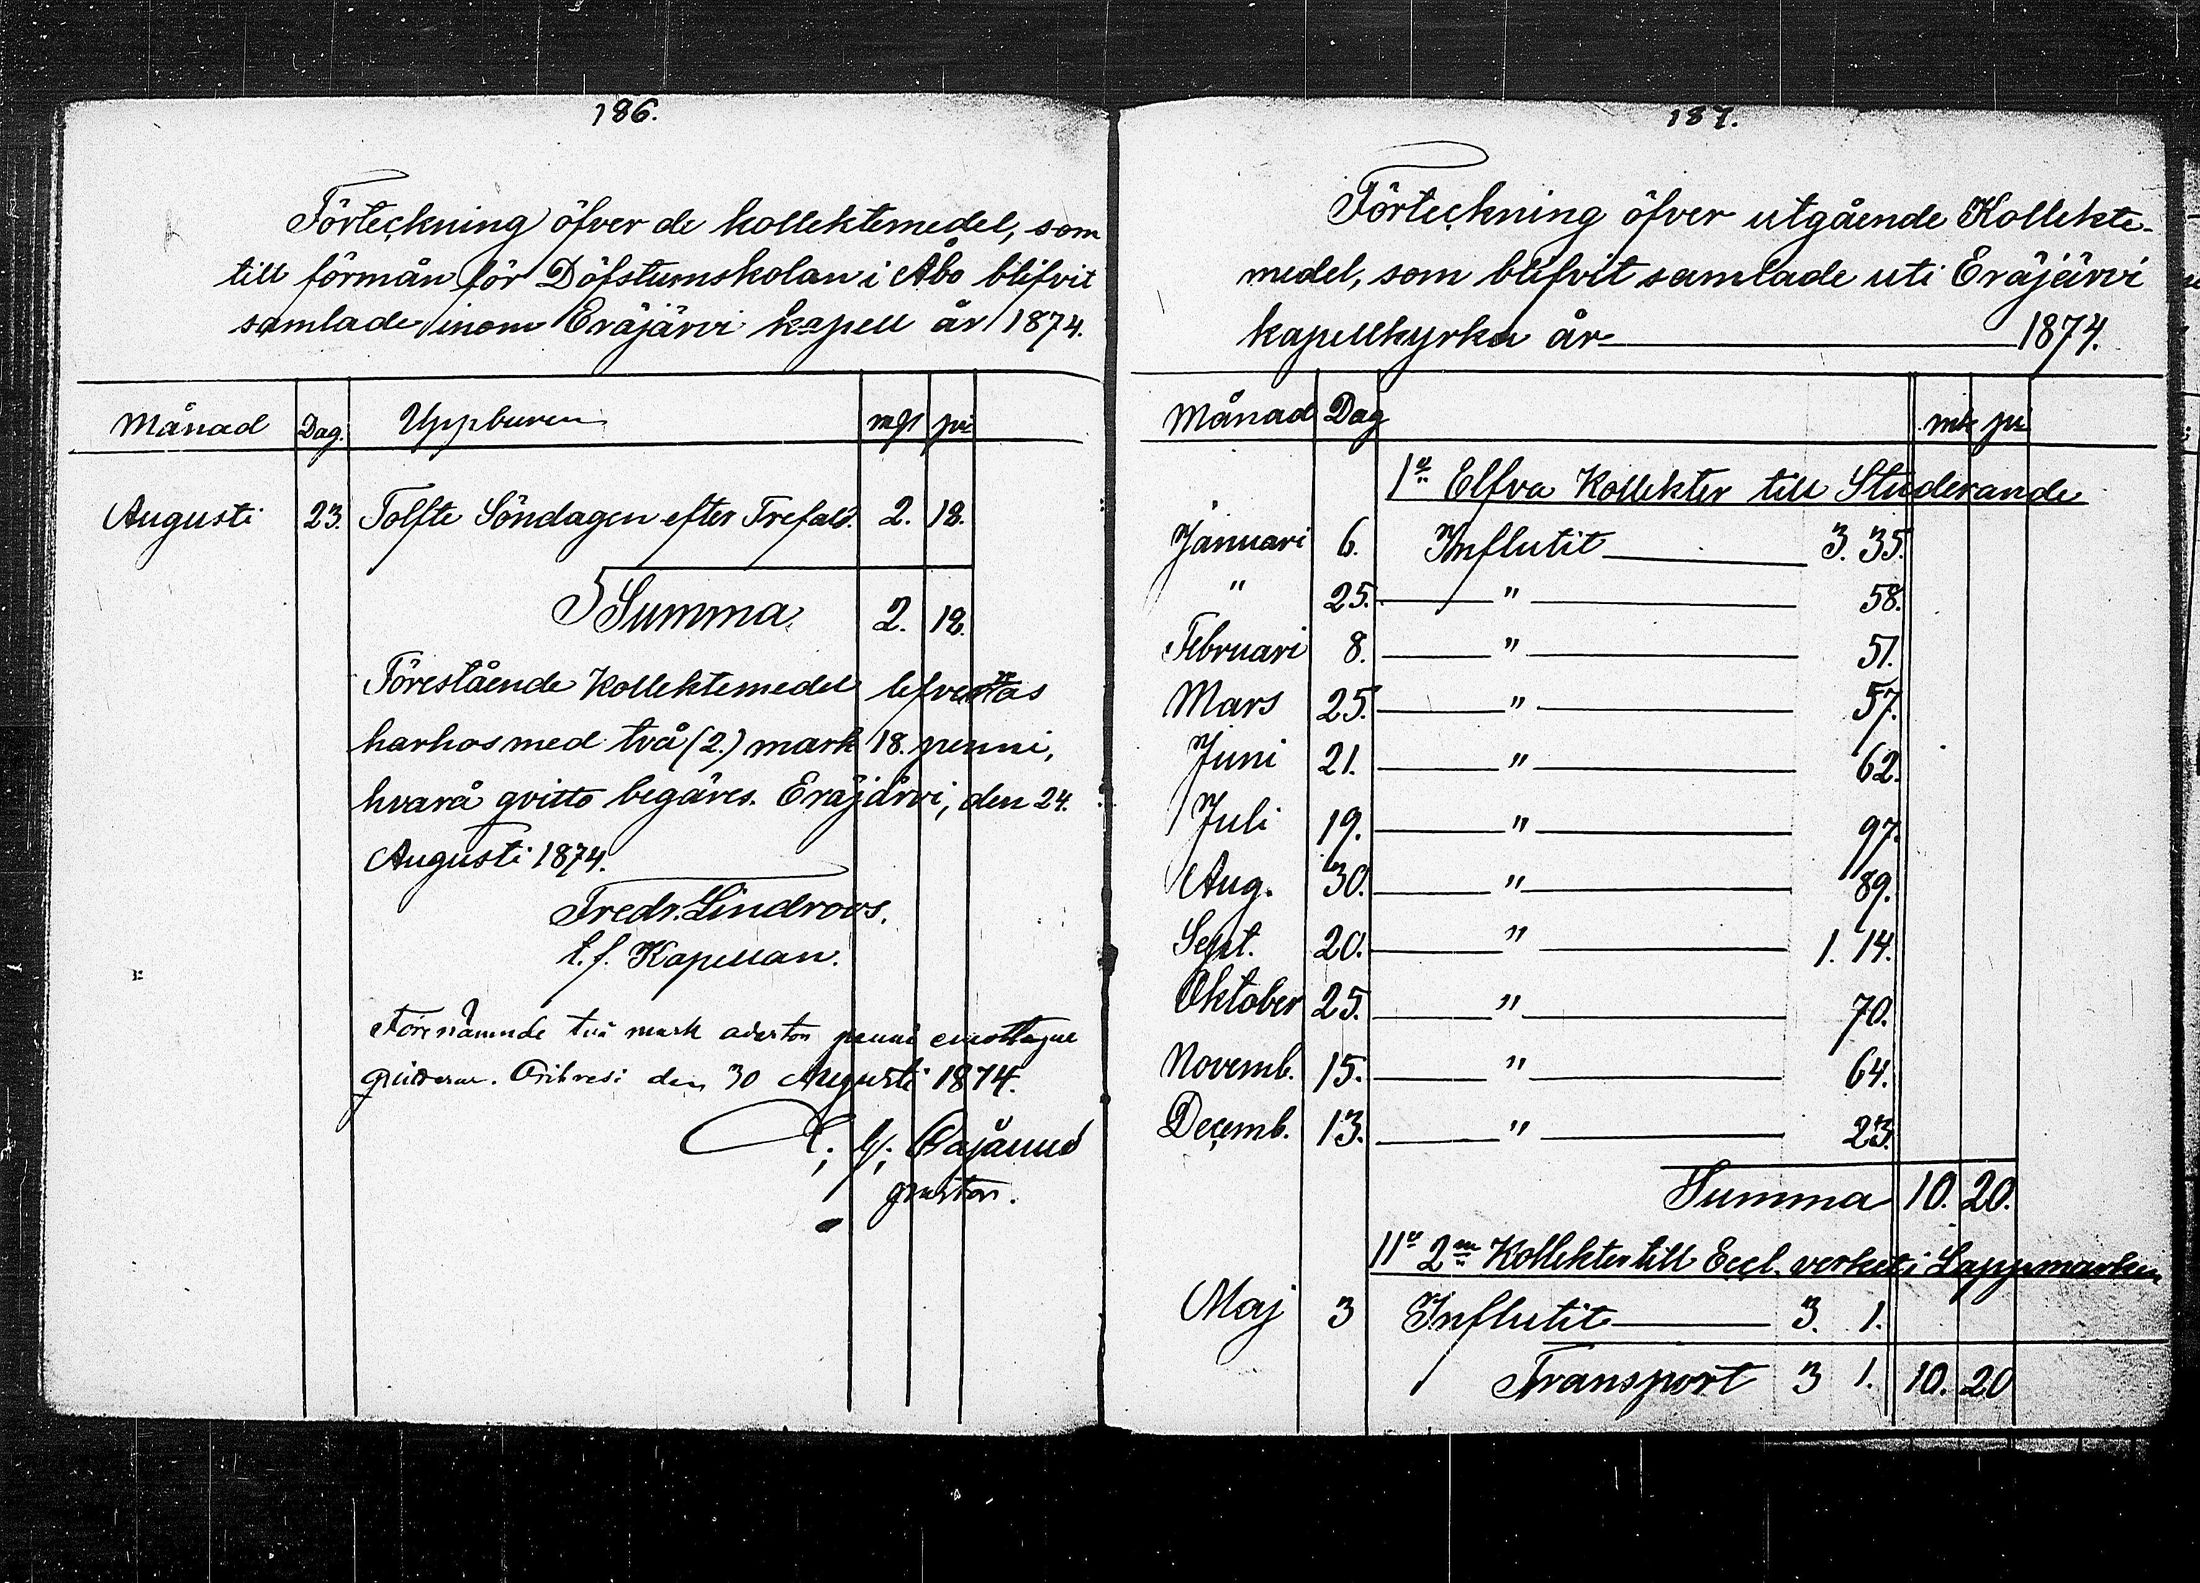 186.
Förteckning öfver de kollektemedel, som
till förmån för Döfstumskolan i Åbo blifvit
samlade inom Eräjärvi kapell år 1874.
Månad Dag. Uppburen mk pi
Augusti 23. Tolfte Söndagen efter Trefald. 2. 18.
Summa 2. 18.
Förestående Kollektemedel lefvereras
härhos med två (2.) mark 18. penni,
hvarå qvitto begäres. Eräjärvi, den 24.
Augusti 1874.
Fredr. Lindroos.
t. f. Kapellan.
Förenämnde två mark aderton penni emottagne
qvitteras. Orihvesi den 30 Augusti 1874.
prosten.
187.
Förteckning öfver utgående Kollekte-
medel, som blifvit samlade uti Eräjärvi
kapellkyrka år 1874.
Månad Dag mk pi
1o Elfva Kollekter till Studerande
Januari 6. Influtit 3. 35.
" 25. " 58.
Februari 8. " 51.
Mars 25. " 57.
Juni 21. " 62.
Juli 19. " 97.
Aug. 30. " 89.
Sept. 20. " 1. 14.
Oktober 25. " 70.
Novemb. 15. " 64.
Decemb. 13. " 23.
Summa 10. 20.
11o 2ne Kollekter till Eccl. verket i Lappmarken
Maj 3 Influtit 3. 1.
Transport 3 1. 10. 20